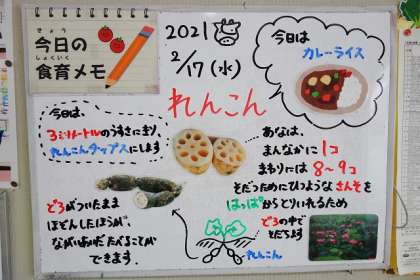 きょう
今日の
しょくいく
食育メモ
2021
2/17(水)
今日は
カレーライス
れんこん
今日は、
3ミリメートルのうすさにきり、
れんこんチップスにします
あなは、
まんなかに1コ
まわりには8〜9コ
そだつためにひつような さんそを
はっぱからとりいれるため
どろがついたまま
ほぞんしたほうが、
ながいあいだたべることが
できます。
どろの中で
そだちます
れんこん